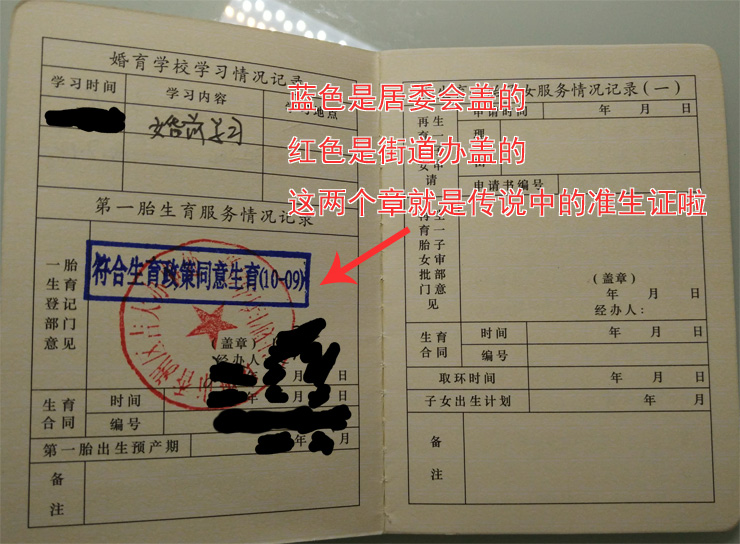 婚育学校学习情况记录
学习时间
学习内容
学习地点
婚前学习
第一胎生育服务情况记录
一胎生育登记部门意见
符合生育政策同意生育(10-09)
(盖章)
经办人
年 月 日
生育合同
时间
年 月 日
编号
第一胎出生预产期
年 月
备注
蓝色是居委会盖的
红色是街道办盖的
这两个章就是传说中的准生证啦
女服务情况记录(一)
申请时间
年 月 日
理
申请书编号
(盖章)
年 月 日
经办人:
生育合同
时间
年 月 日
编号
取环时间
年 月 日
子女出生计划
年 月
备注